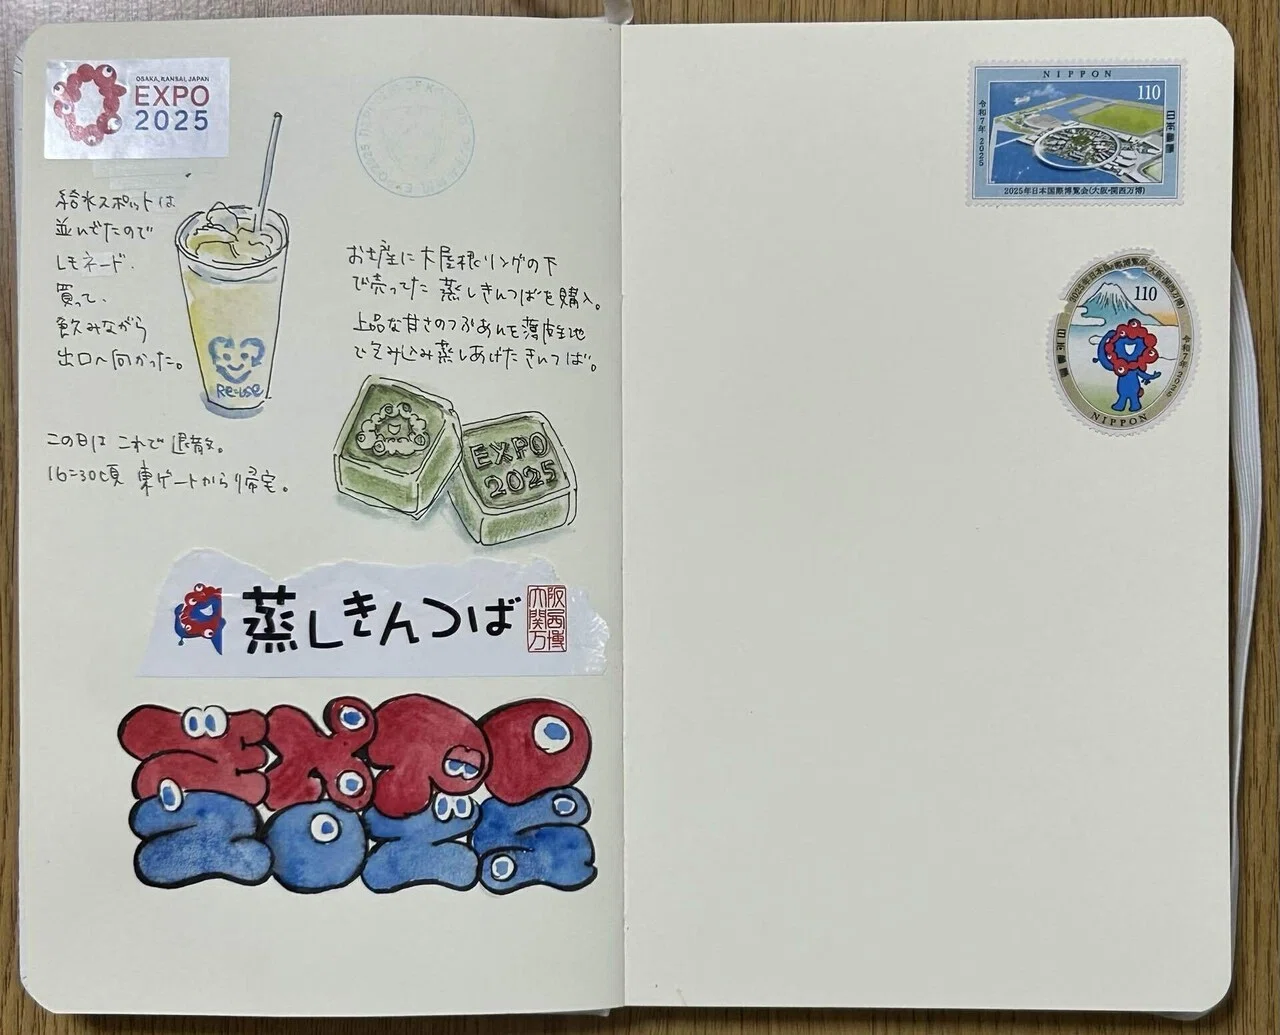 OSAKA, KANSAI, JAPAN
EXPO
2025
給水スポットは
並んでたので
レモネード.
買って、
飲みながら
出口へ向かった。
Re=use
この日は これで 退散。
16=30頃 東ゲートから帰宅。
お土産に大屋根リングの下
で売ってた 蒸しきんつばを購入。
上品な甘さのつぶあんを薄皮生地
で包み込み蒸しあげたきんつば。
EXPO
2025
蒸しきんつば
大阪
関西
万博
EXPO
2025
NIPPON
110
日本郵便
令和7年 2025
2025年日本国際博覧会(大阪・関西万博)
2025年日本国際博覧会(大阪・関西万博)
110
日本郵便
令和7年 2025
NIPPON